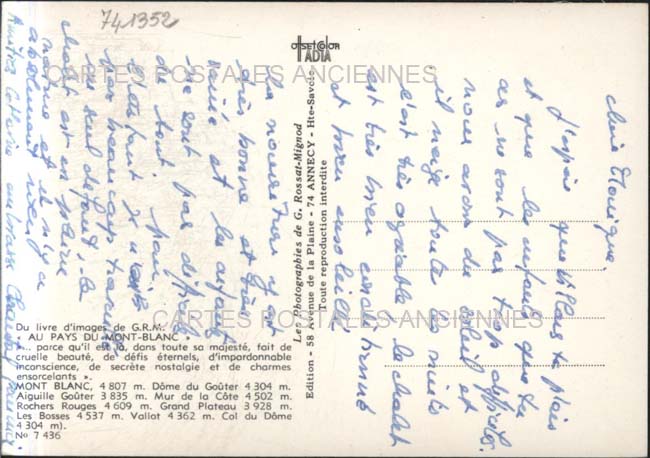 741352
OFFSETCOLOR
IADIA
CARTES POSTALES ANCIENNES
CARTES POSTALES ANCIENNES
Chère Monique,
J'espère que Villard te plais
et que les enfants que tu
as ne sont pas trop difficiles.
nous avons du soleil et
il neige toute la nuit
c'est très agréable le chalet
est très bien construit
et bien ensoleillé
la nourriture y est
très bonne et bien
variée et les enfants
ne sont pas difficiles
du tout
bien beaucoup travailler
le seul défaut le
chalet est en pleine
nature et il n'y a
absolument rien
Amitiés
Les Photographies de G. Rossat-Mignod
Edition - 58 Avenue de la Plaine - 74 ANNECY - Hte-Savoie
Toute reproduction interdite
Du livre d'images de G.R.M.
« AU PAYS DU MONT-BLANC »
« .. parce qu'il est là, dans toute sa majesté, fait de
cruelle beauté, de défis éternels, d'impardonnable
inconscience, de secrète nostalgie et de charmes
ensorcelants ».
MONT BLANC, 4 807 m. Dôme du Goûter 4 304 m.
Aiguille Goûter 3 835 m. Mur de la Côte 4 502 m.
Rochers Rouges 4 609 m. Grand Plateau 3 928 m.
Les Bosses 4 537 m. Vallot 4 362 m. Col du Dôme
4 304 m).
No 7 436